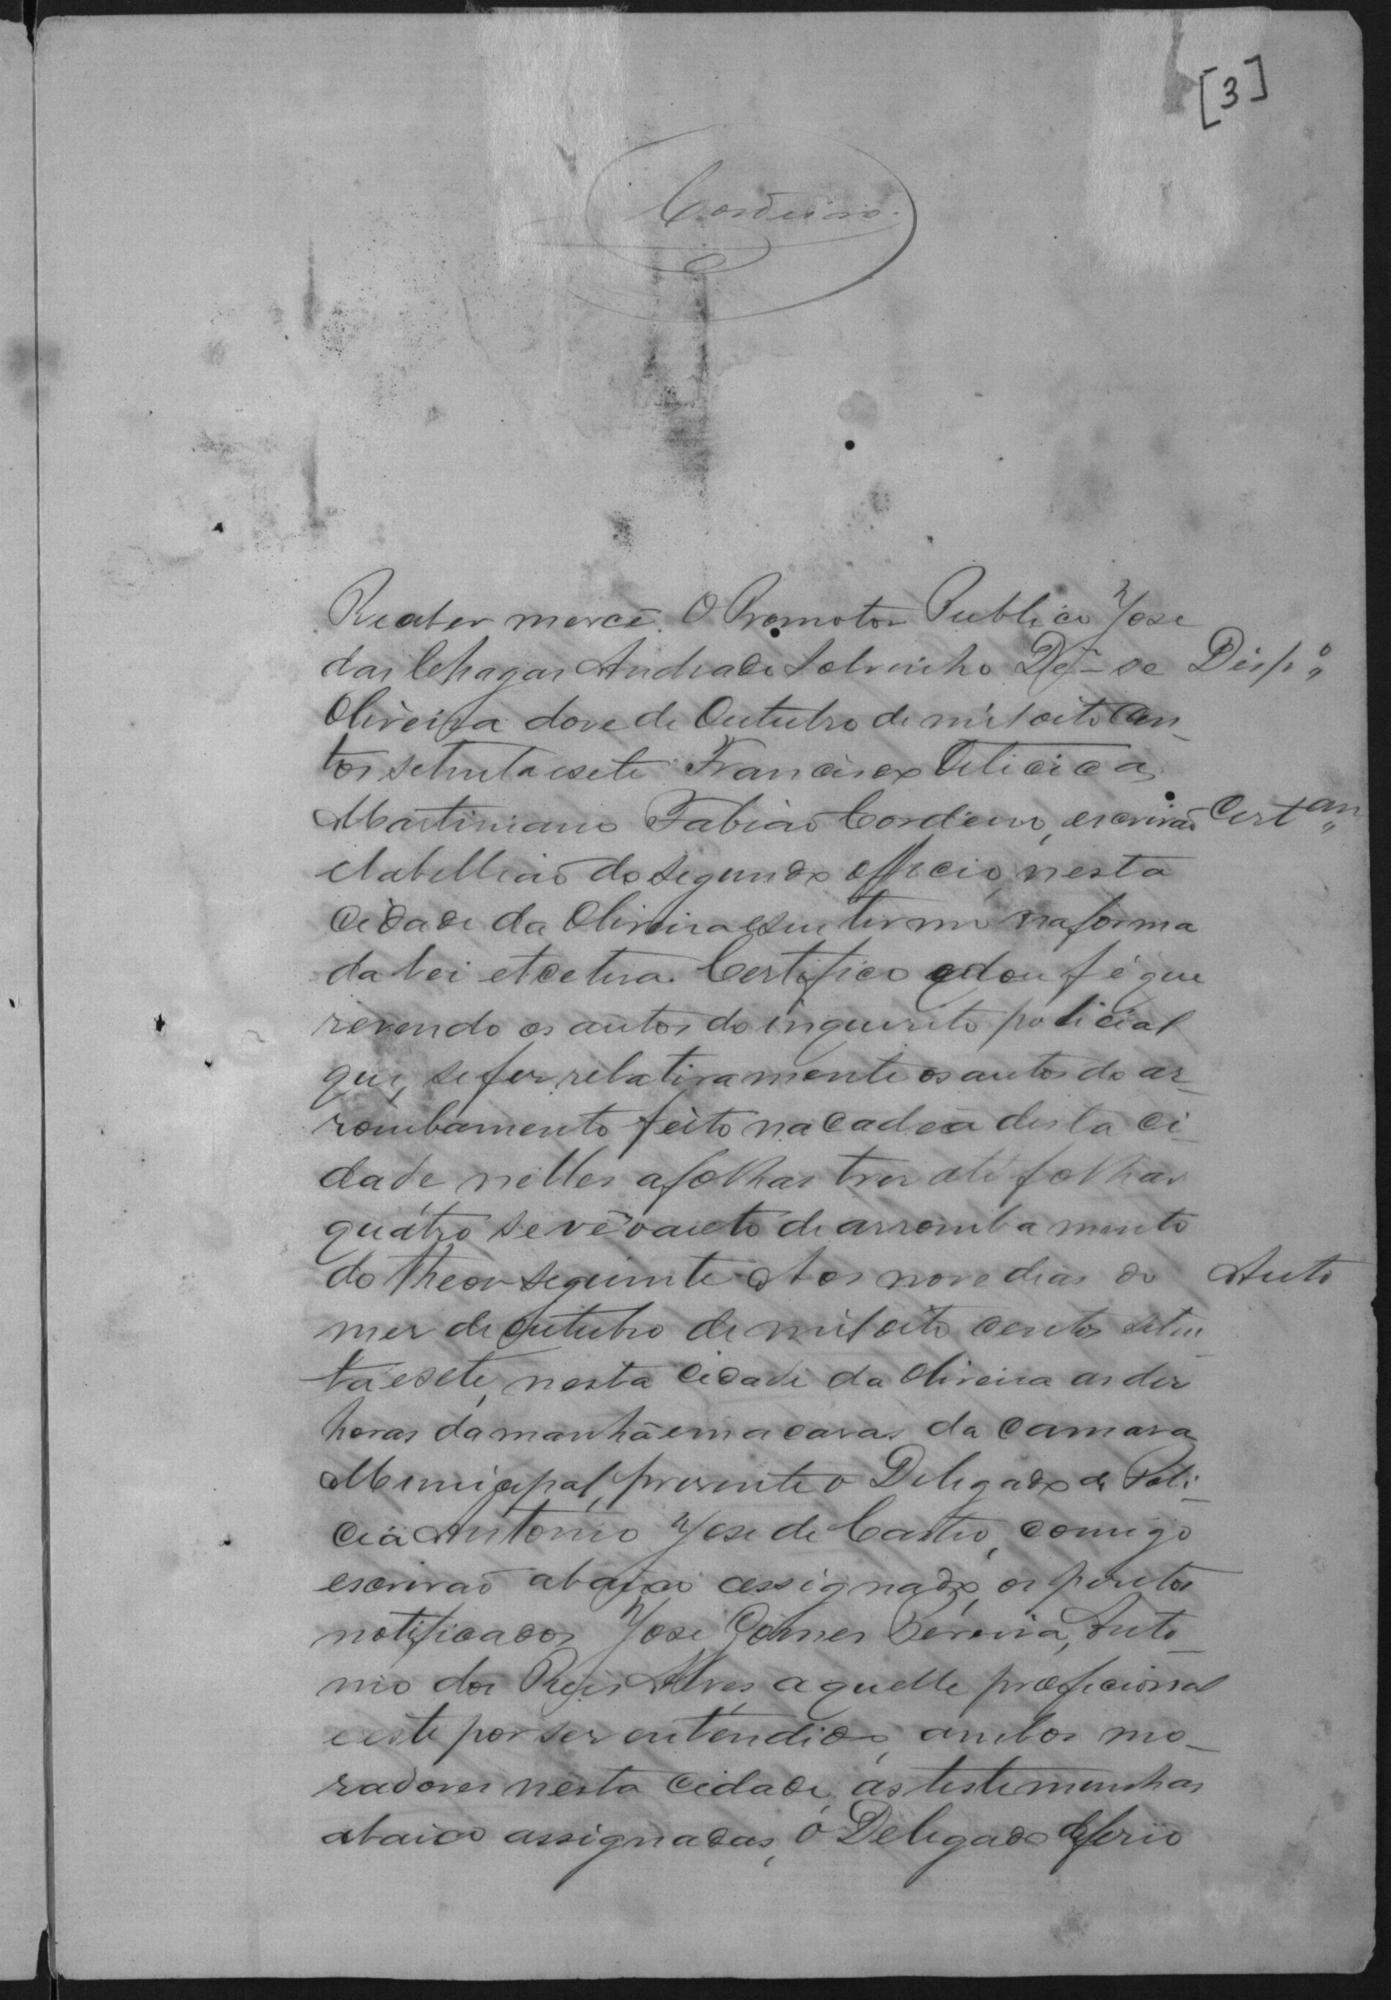 [3]
Cordeiro.
Receber mercê. O Promotor Publico Jose
das Chagas Andrade Sobrinho Dfr-se Desp.º
Oliveira doze de Outubro de mil oito cen-
tos setenta e sete Francisco
Martiniano Fabião Cordeiro, escrivão Certam
e tabellião do segundo officio, nesta
cidade da Oliveira e seu termo na forma
da lei etcetera. Certifico e dou fé que
revendo os autos do inquerito policial
que, se fez relativamente os autos do ar-
rombamento feito na cadea desta ci-
dade, nelles a folhas tres até folhas
quatro se vê o aucto de arrombamento
do theor seguinte Aos nove dias do Auto
mez de outubro de mil oito centos seten-
ta e sete, nesta cidade da Oliveira as dez
horas da manhã em a casas da Camara
Municipal, presente o Delegado de Poli-
cia Antonio Jose de Castro, comigo
escrivão abaixo assignado, os peritos
notificados Jose Gomes Pereira, Anto-
nio dos Reis Alves, aquelle proficional
e este por ser entendido, ambos mo-
radores nesta cidade, as testemunhas
abaico assignadas, o Delegado deferio